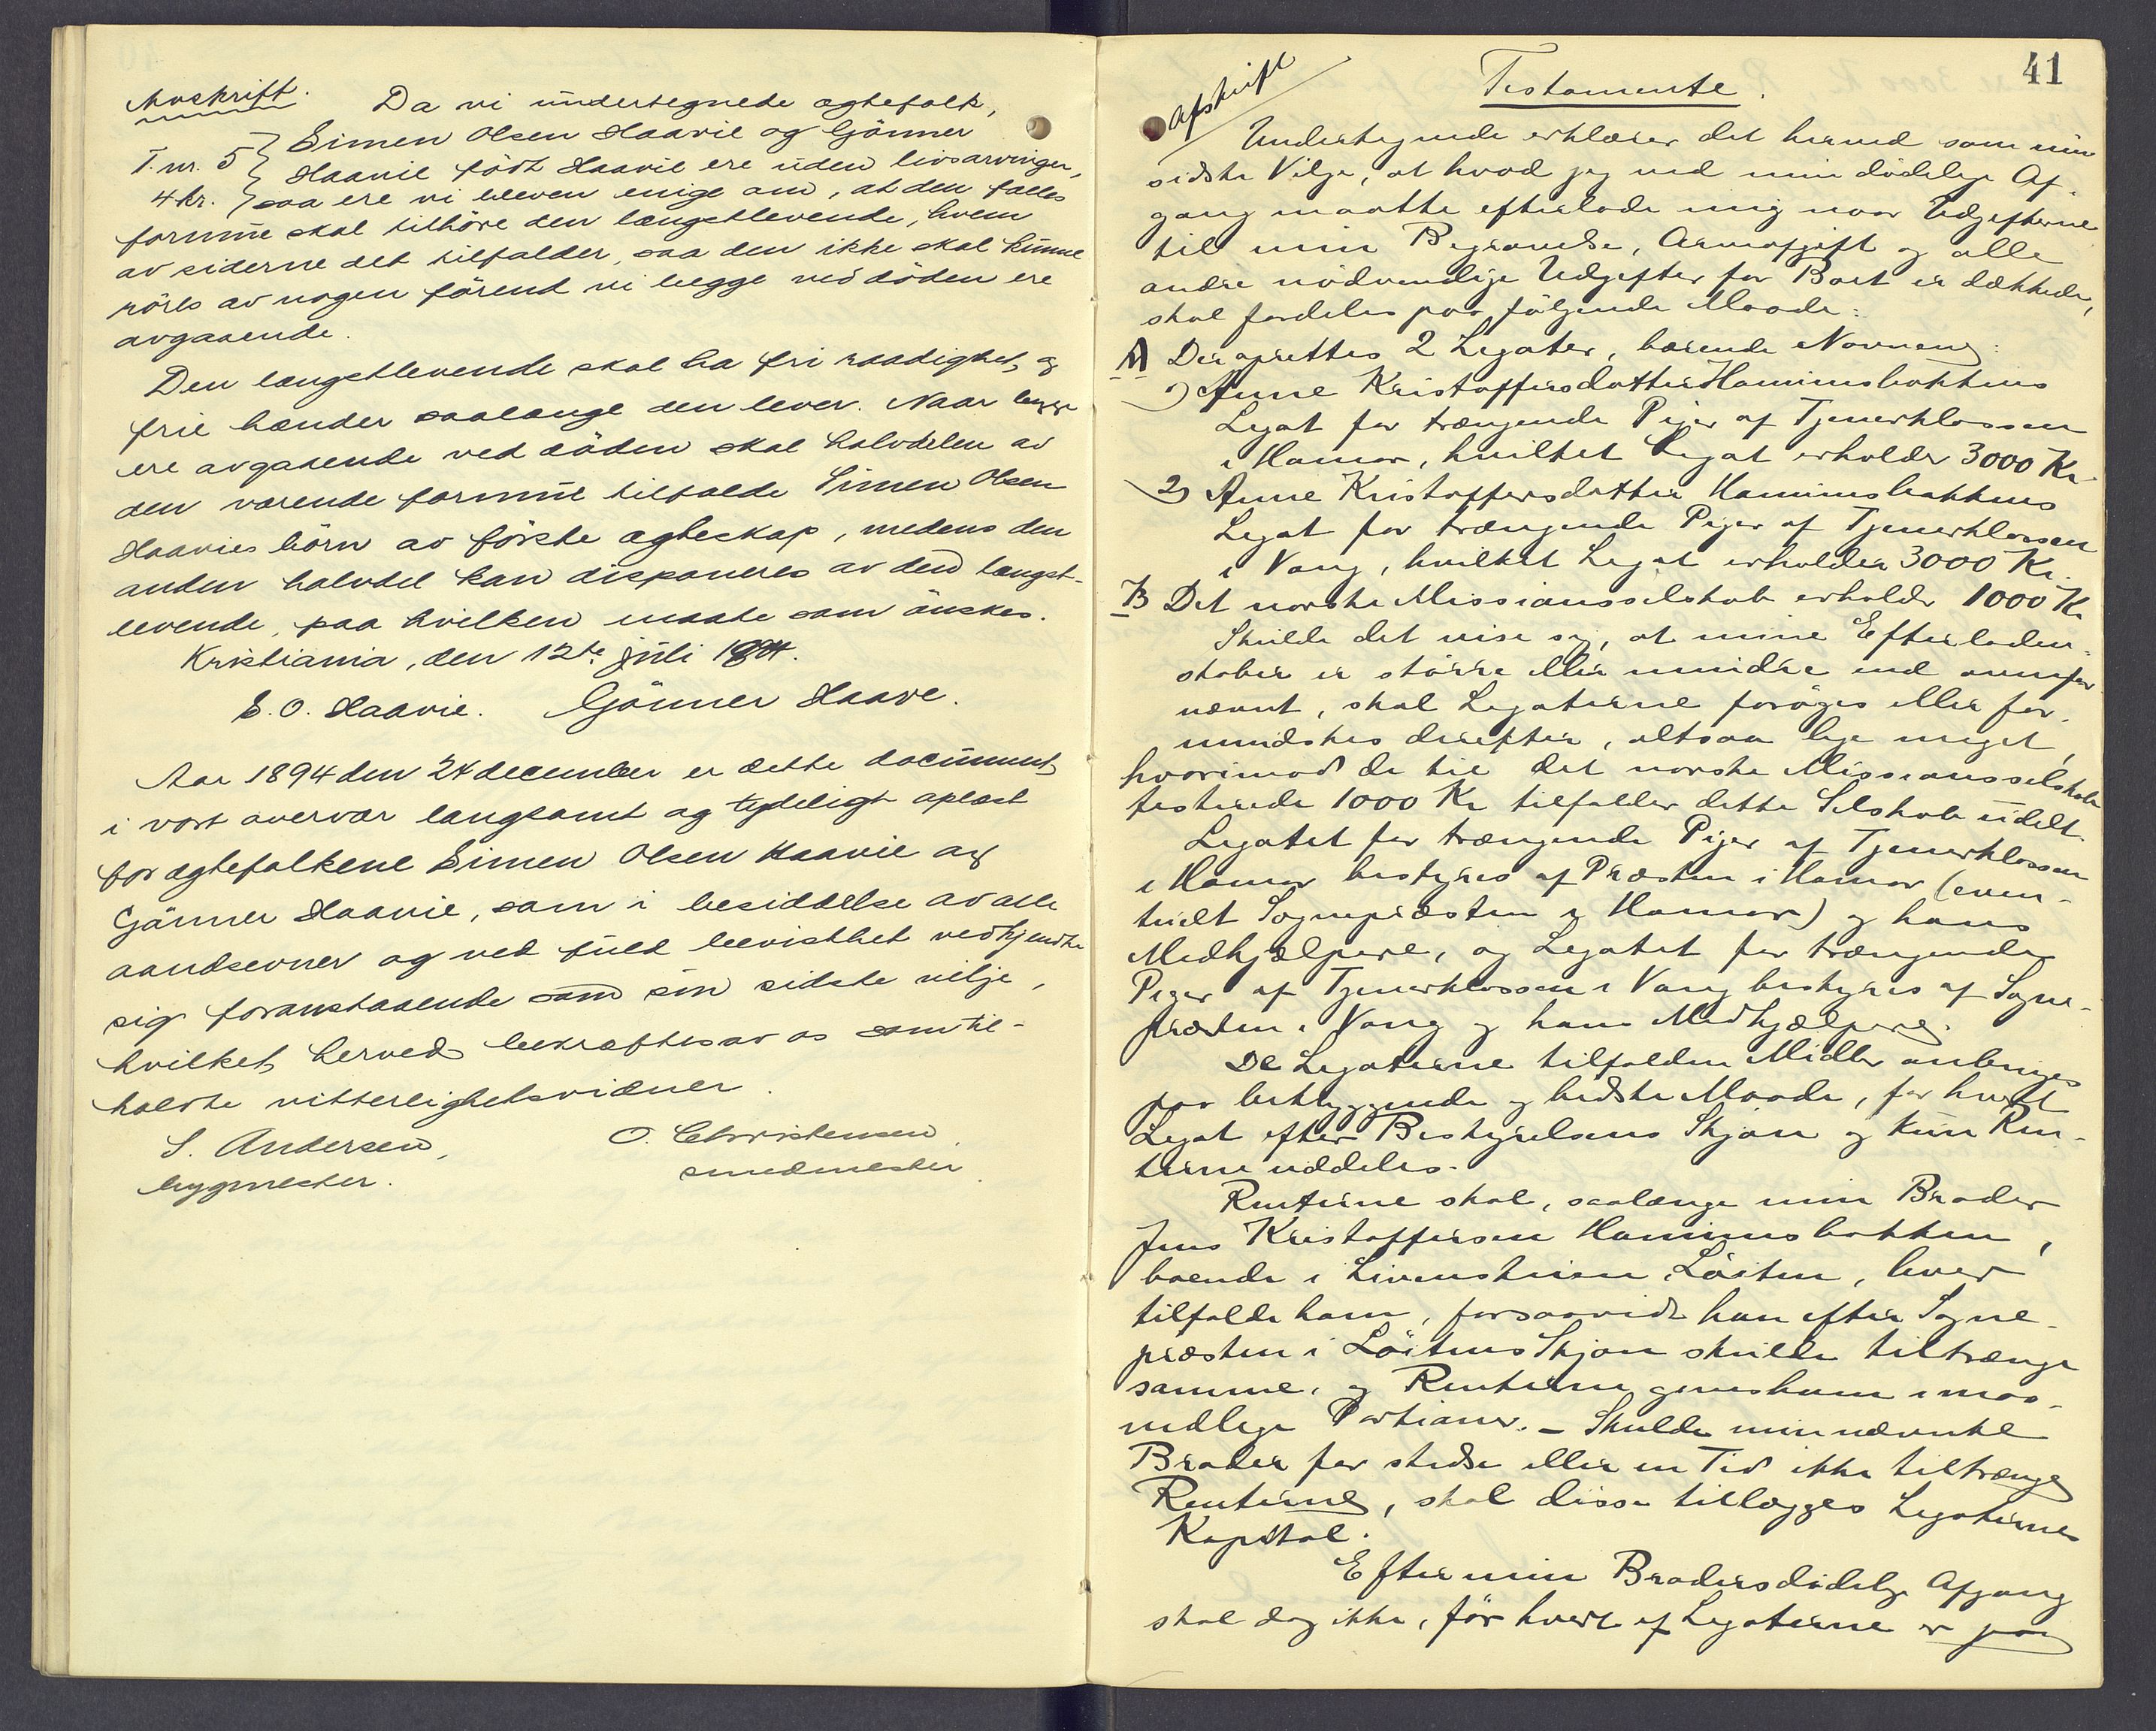 Avskrift.
Da vi undertegnede ægtefolk,
T. nr. 5 Simen Olsen Haavie og Gönner
4 kr. Haavie födt Haavie ere uden livsarvinger,
saa ere vi bleven enige om, at den fælles
formue skal tilhöre den længstlevende, hvem
av siderne det tilfalder, saa den ikke skal kunne
röres av nogen förend vi begge ved döden ere
avgaaende.
Den længstlevende skal ha fri raadighet og
frie hænder saalænge den lever. Naar begge
ere avgaaende ved döden skal halvdelen av
den værende formue tilfalde Simen Olsen
Haavies börn av förste ægteskap, medens den
anden halvdel kan disponeres av den længst-
levende, paa hvilken maate som önskes.
Kristiania, den 12te juli 1894.
S. O. Haavie. Gönner Haave.
Aar 1894 den 24 december er dette document
i vort overvær langsomt og tydeligt oplæst
for ægtefolkene Simen Olsen Haavie og
Gönner Haavie, som i besiddelse av alle
aandsevner og ved fuld bevisthet vedkjendte
sig foranstaaende som sin sidste vilje,
hvilket herved bekræftes av os som til-
kaldte vitterlighetsvidner.
S. Andersen, O. Christensen,
bygmester. smedmester
41
Afskrift
Testamente.
Undertegnede erklærer det herved som min
sidste Vilje, at hvad jeg ved min dödelige Af-
gang maatte efterlade mig naar Udgifterne
til min Begravelse, Arveafgift og alle
andre nödvendige Udgifter for Boet er dækkede,
skal fordeles paa fölgende Maade:
A Der oprettes 2 Legater, bærende Navnene:
1) Anne Kristoffersdatter Hommersbakkens
Legat for trængende Piger af Tjenerklassen
i Hamar, hvilket Legat erholder 3000 Kr.
2) Anne Kristoffersdatter Hommersbakkens
Legat for trængende Piger af Tjenerklassen
i Vang, hvilket Legat erholder 3000 Kr.
B Det norske Missionsselskab erholder 1000 Kr
Skulde det vise sig, at mine Efterladen-
skaber er större eller mindre end ovenfor
nævnt, skal Legaterne foröges eller for-
mindskes derefter, altsaa lige meget,
hvorimod de til det norske Missionsselskab
testerede 1000 Kr tilfalder dette Selskab udelt.
Legatet for trængende Piger af Tjenerklassen
i Hamar bestyres af Præsten i Hamar (even-
tuelt Sognepræsten i Hamar) og hans
Medhjælpere, og Legatet for trængende
Piger af Tjenerklassen i Vang bestyres af Sogne-
præsten i Vang og hans Medhjælpere.
De Legaterne tilfaldne Midler anbringes
paa betryggende og bedste Maade, for hvert
Legat efter Bestyrelsens Skjön og kun Ren-
terne uddeles.
Renterne skal, saalænge min Broder
Jens Kristoffersen Hommersbakken,
boende i Livensteien, Löiten, lever
tilfalde ham, forsaavidt han efter Sogne-
præsten i Löitens Skjön skulde tiltrænge
samme, og Renterne gives ham i maa-
nedlige Portioner. - Skulde min nævnte
Broder for stedse eller en Tid ikke tiltrænge
Renterne, skal disse tillægges Legaternes
Kapital.
Efter min Broders dödelige Afgang
skal dog ikke, för hvert af Legaterne er paa